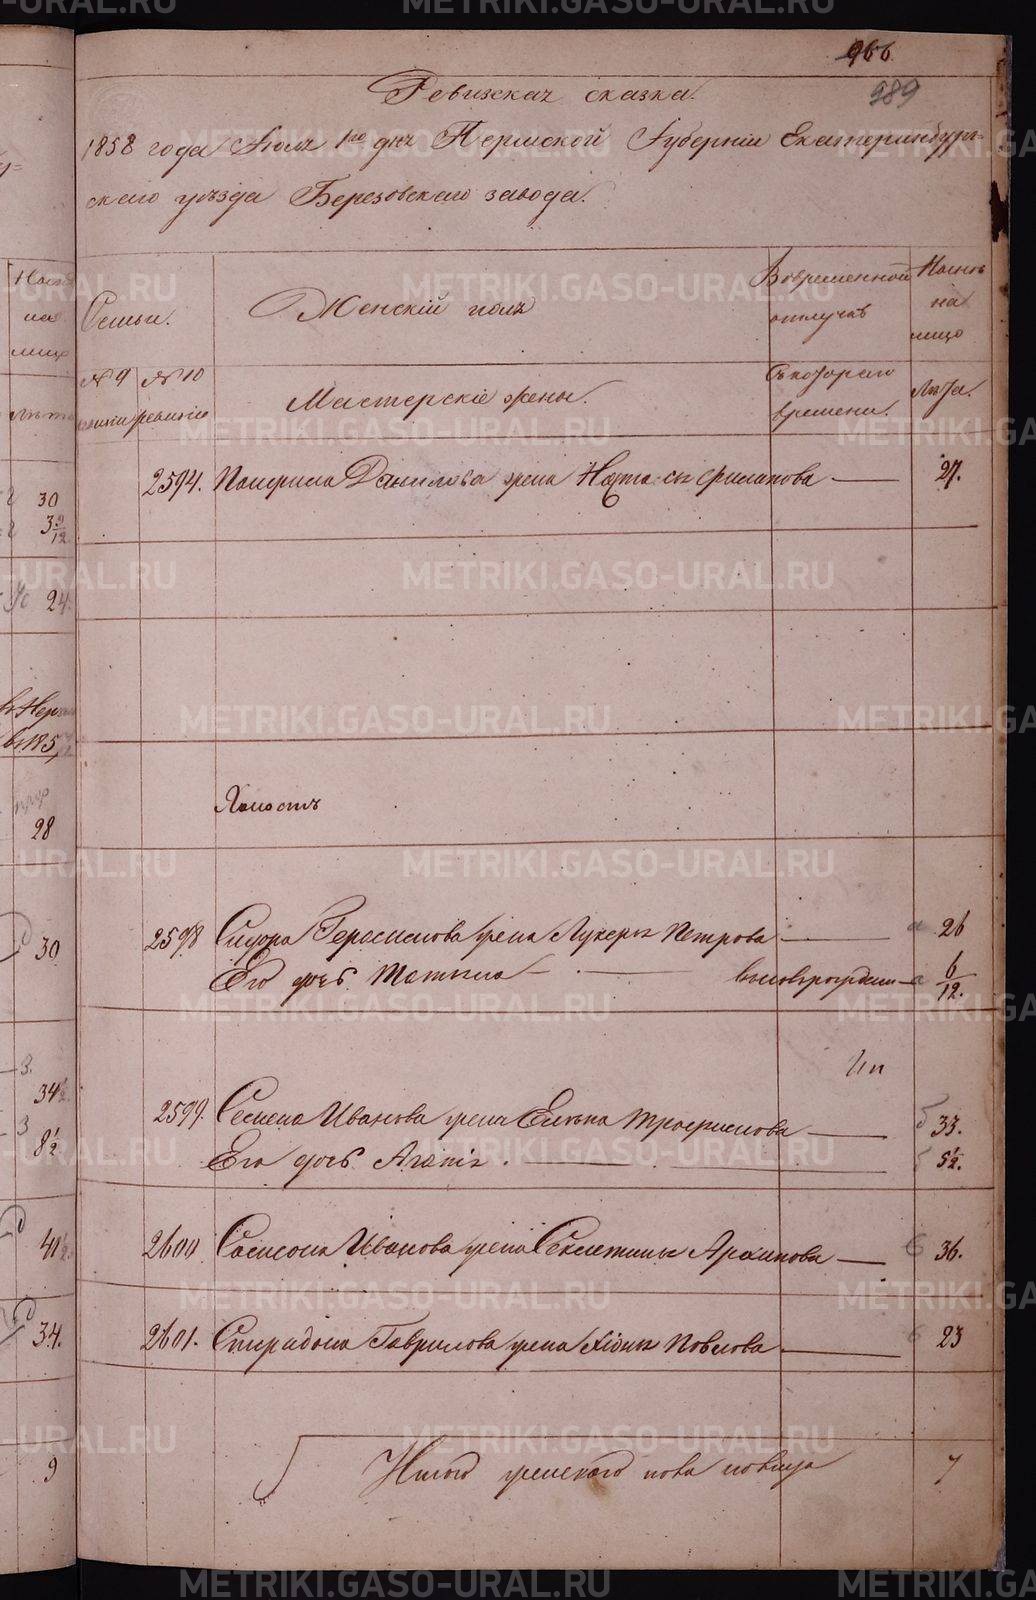 966.
989
Ревизская сказка.
1858 года Июля 1го дня Пермской Губерніи Екатеринбург=
скаго уѣзда Березовскаго завода.
Семьи.
Женскій полъ
Во временной отлучкѣ
Налицо
№ 9 ревизіи
№ 10 ревизіи
Мастерскіе жены.
Съ котораго времени.
Лѣта.
2594. Данилова жена Настасья Филипова — 27.
Холостъ
2598 Сидора Герасимова жена Лукерья Петрова — 26
Его дочь Татьяна — — новорожденн— 6/12.
2599. Семена Иванова жена Елена Трофимова — 33.
Его дочь Агапія. — 5½.
2600 Самсона Иванова жена Секлетинья Архипова — 36.
2601. Спиридона Гаврилова жена Павлова — 23
Итого женскаго пола налицо 7
30
3 9/12
24
28
30
34
8½
41
34.
9
METRIKI.GASO-URAL.RU